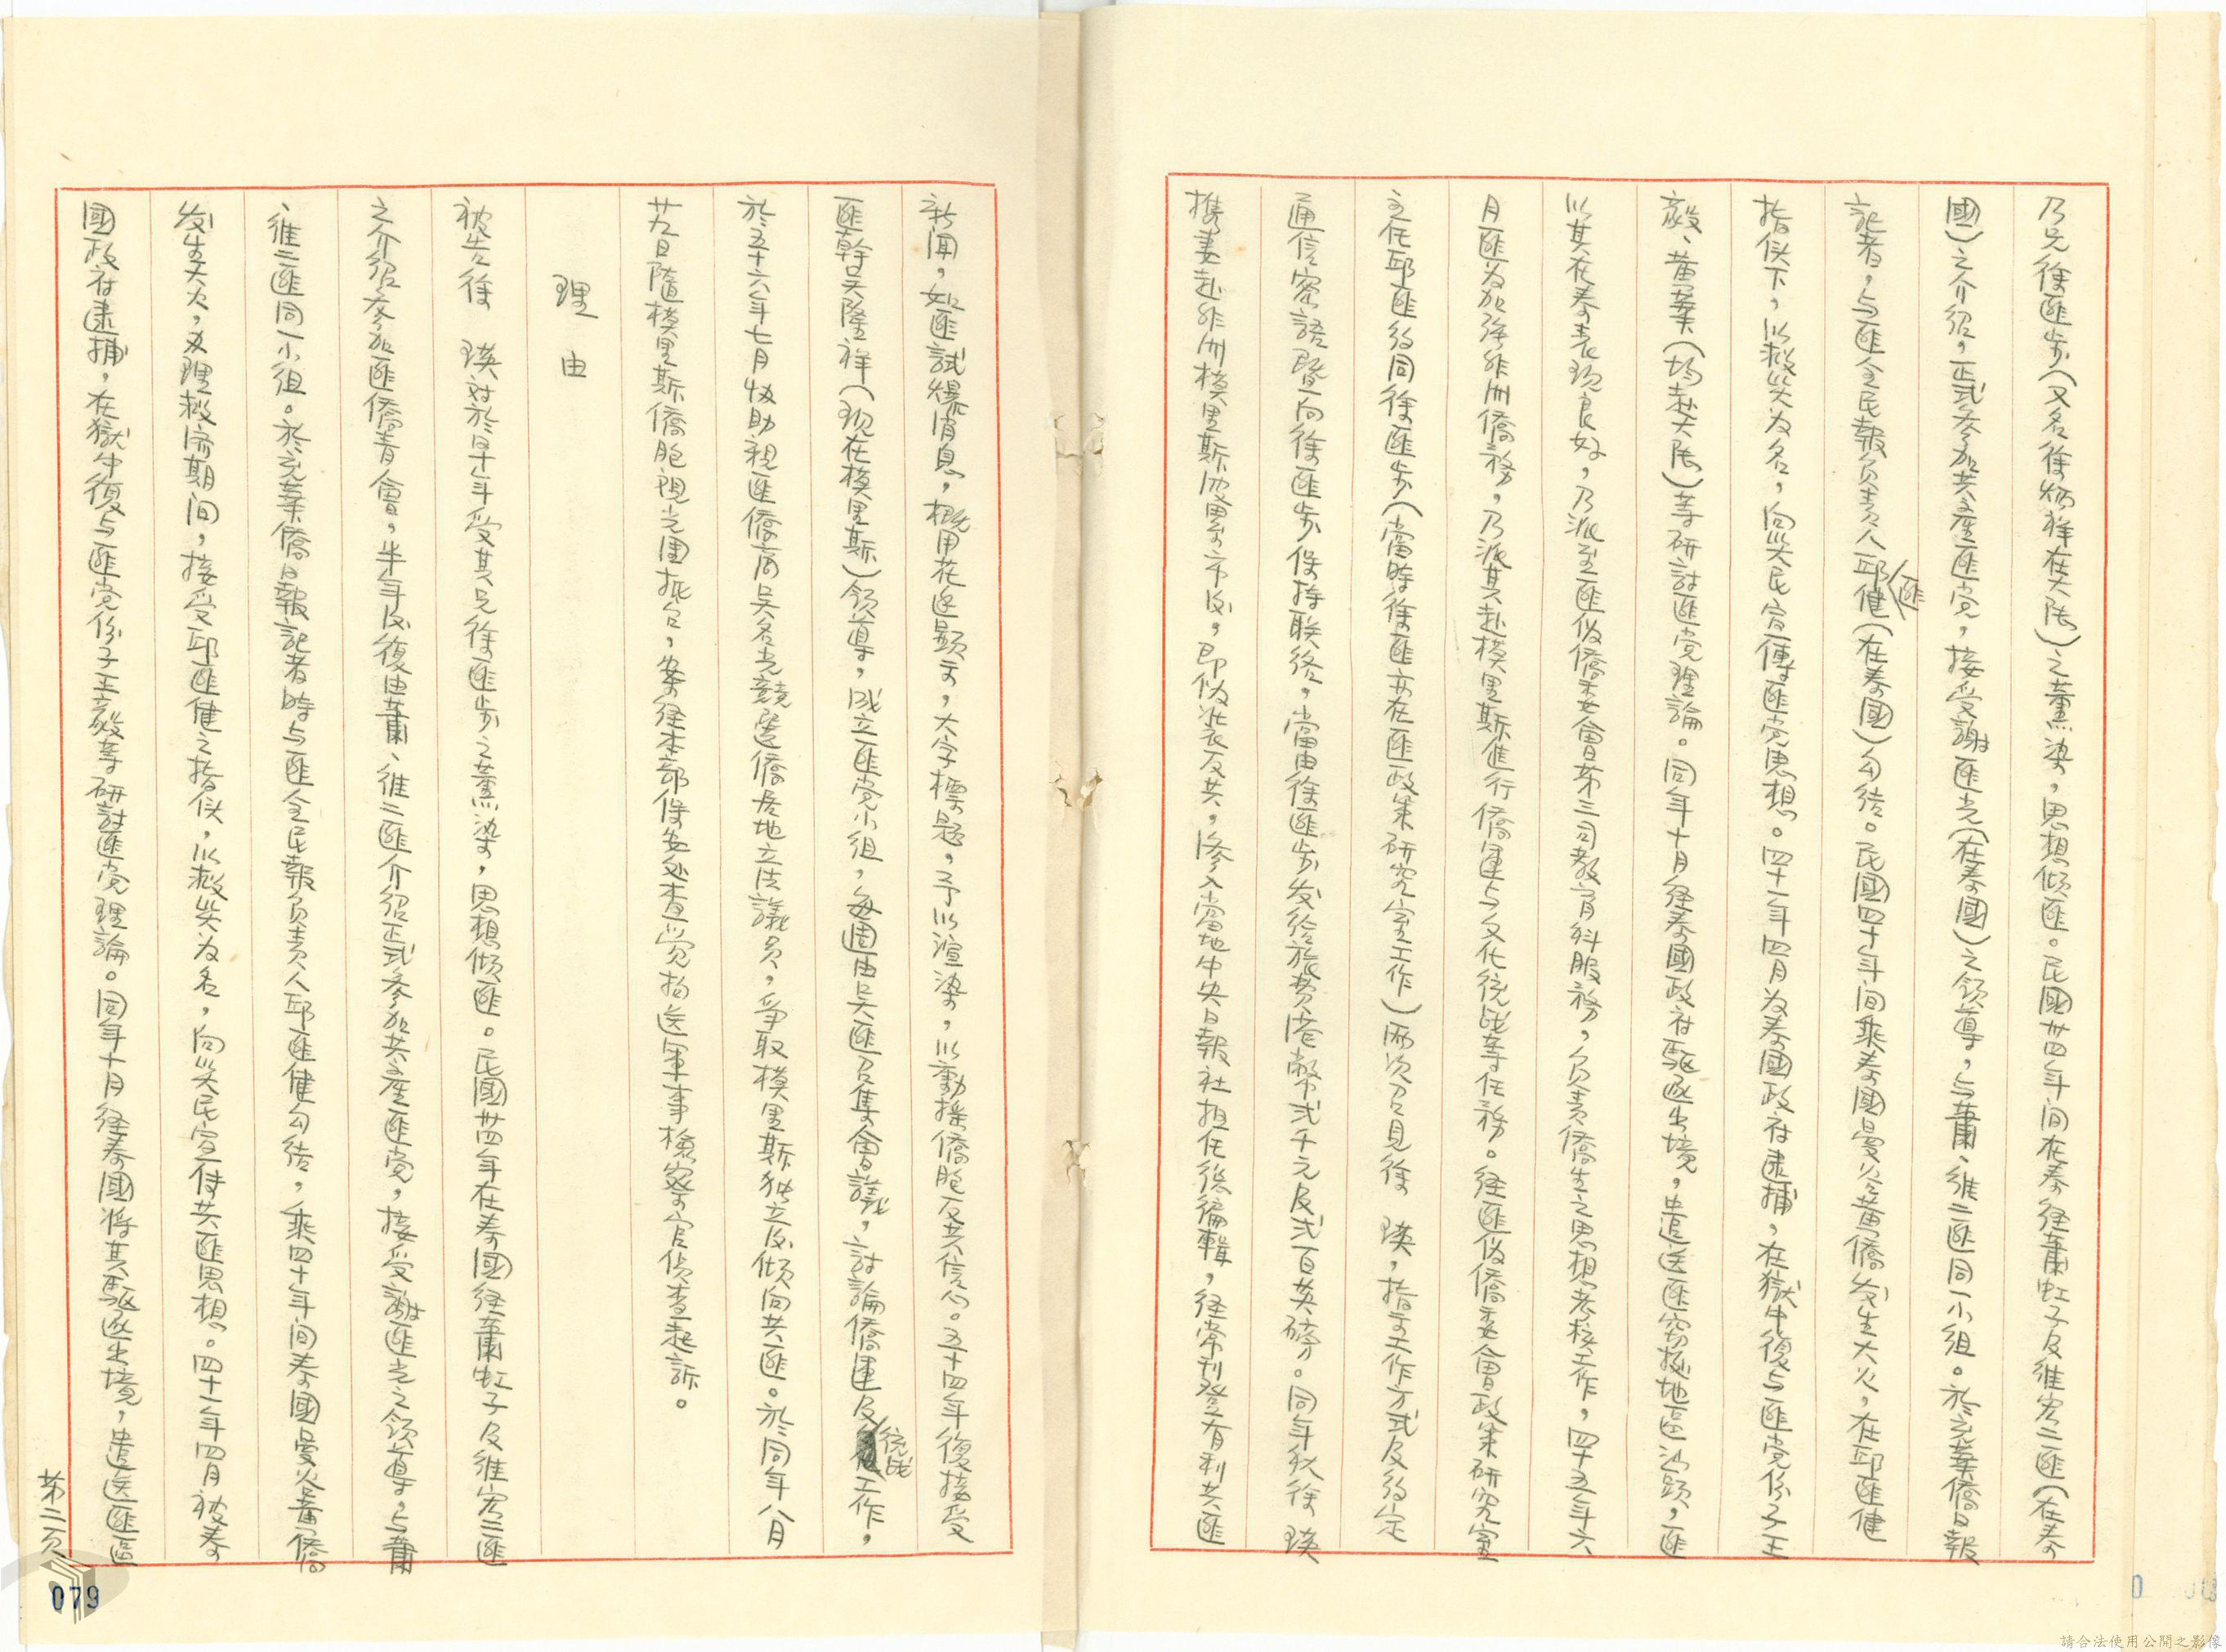 乃兄徐匪步(又名徐炳祥在大陆)之薰染,思想倾匪。民國卅四年间在泰经萧虹子及維宏二匪(在泰
國)之介紹,正式參加共產匪党,接受謝匪光(在泰國)之領導,与蕭、維二匪同一小组。於充業僑日報
記者,与匪全民報负责人邱〈匪〉健(在泰國)勾结。民國四十年间乘泰國曼谷黃僑发生大火,在邱匪健
指使下,以救災为名,向災民宣傳匪党思想。四十一年四月为泰國政府逮捕,在獄中復与匪党份子王
毅、黄業(均赴大陆)等研討匪党理論。同年十月经泰國政府驱逐出境,遣送匪窃據地區汕頭,匪
以其在泰表现良好,乃派至匪伪僑委會第三司教育科服務,负责僑生之思想考核工作,四十五年六
月匪为加強非洲僑務,乃派其赴模里斯進行僑運与文化统战等任務。经匪伪僑委會政策研究室
主任邱匪约同徐匪步(當時徐匪亦在匪政策研究室工作)两次召見徐 瑛,指示工作方式及约定
通信密語暨向徐匪步保持联络,當由徐匪步发给旅费港幣弍千元及弍百英磅。同年秋徐 瑛
携妻赴非洲模里斯波累市后,即伪装反共,滲入當地中央日報社担任後编輯,经常刊登有利共匪
新闻,如匪試爆消息,概用花边顯示,大字標題,予以渲染,以動搖僑胞反共信心。五十四年復接受
匪幹吴隆祥(现在模里斯)領導,成立匪党小组,每週由吴匪召集會議,討論僑運及〈统战〉工作,
於五十六年七月协助親匪僑商吴名光競選僑居地立法議员,争取模里斯独立后倾向共匪。於同年八月
廿九日隨模里斯僑胞觀光團抵台,案经本部保安处查覺拘送軍事檢察官偵查起訴。
理 由
被告徐 瑛對於早年受其兄徐匪步之薰染,思想倾匪。民國卅四年在泰國经蕭虹子及維宏二匪
之介紹參加匪僑青會,半年后復由蕭、維二匪介紹正式參加共產匪党,接受謝匪光之領導,与蕭
、維二匪同一小组。於充業僑日報記者時与匪全民報负责人邱匪健勾结,乘四十年间泰國曼谷黃僑
发生大火,办理救济期间,接受邱匪健之指使,以救災为名,向災民宣传共匪思想。四十一年四月被泰
國政府逮捕,在獄中復与匪党份子王毅等研討匪党理論。同年十月经泰國將其驱逐出境,遣送匪區
第二页
079
請合法使用公開之影像